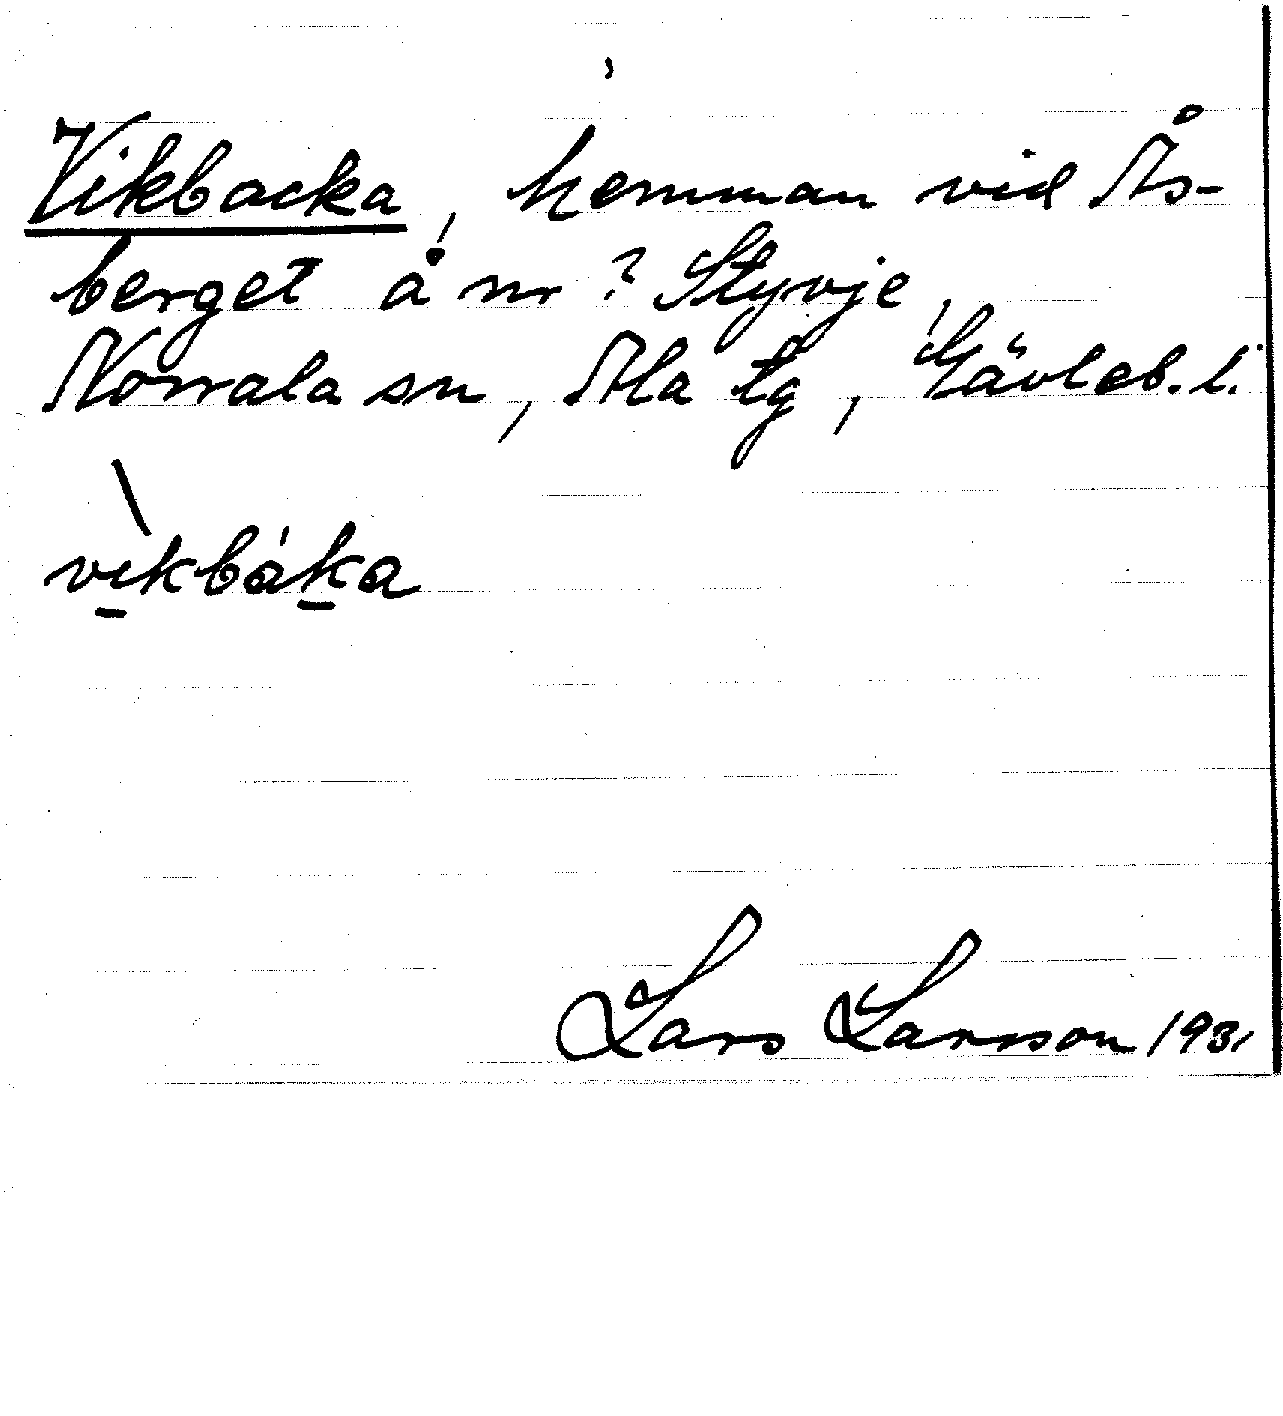 Vikbacka, hemman vid Ås-
berget å nr ? Styvje,
Norrala sn, Ala tg, Gävleb. l.
vì̲kbák̲a
Lars Larsson 1931